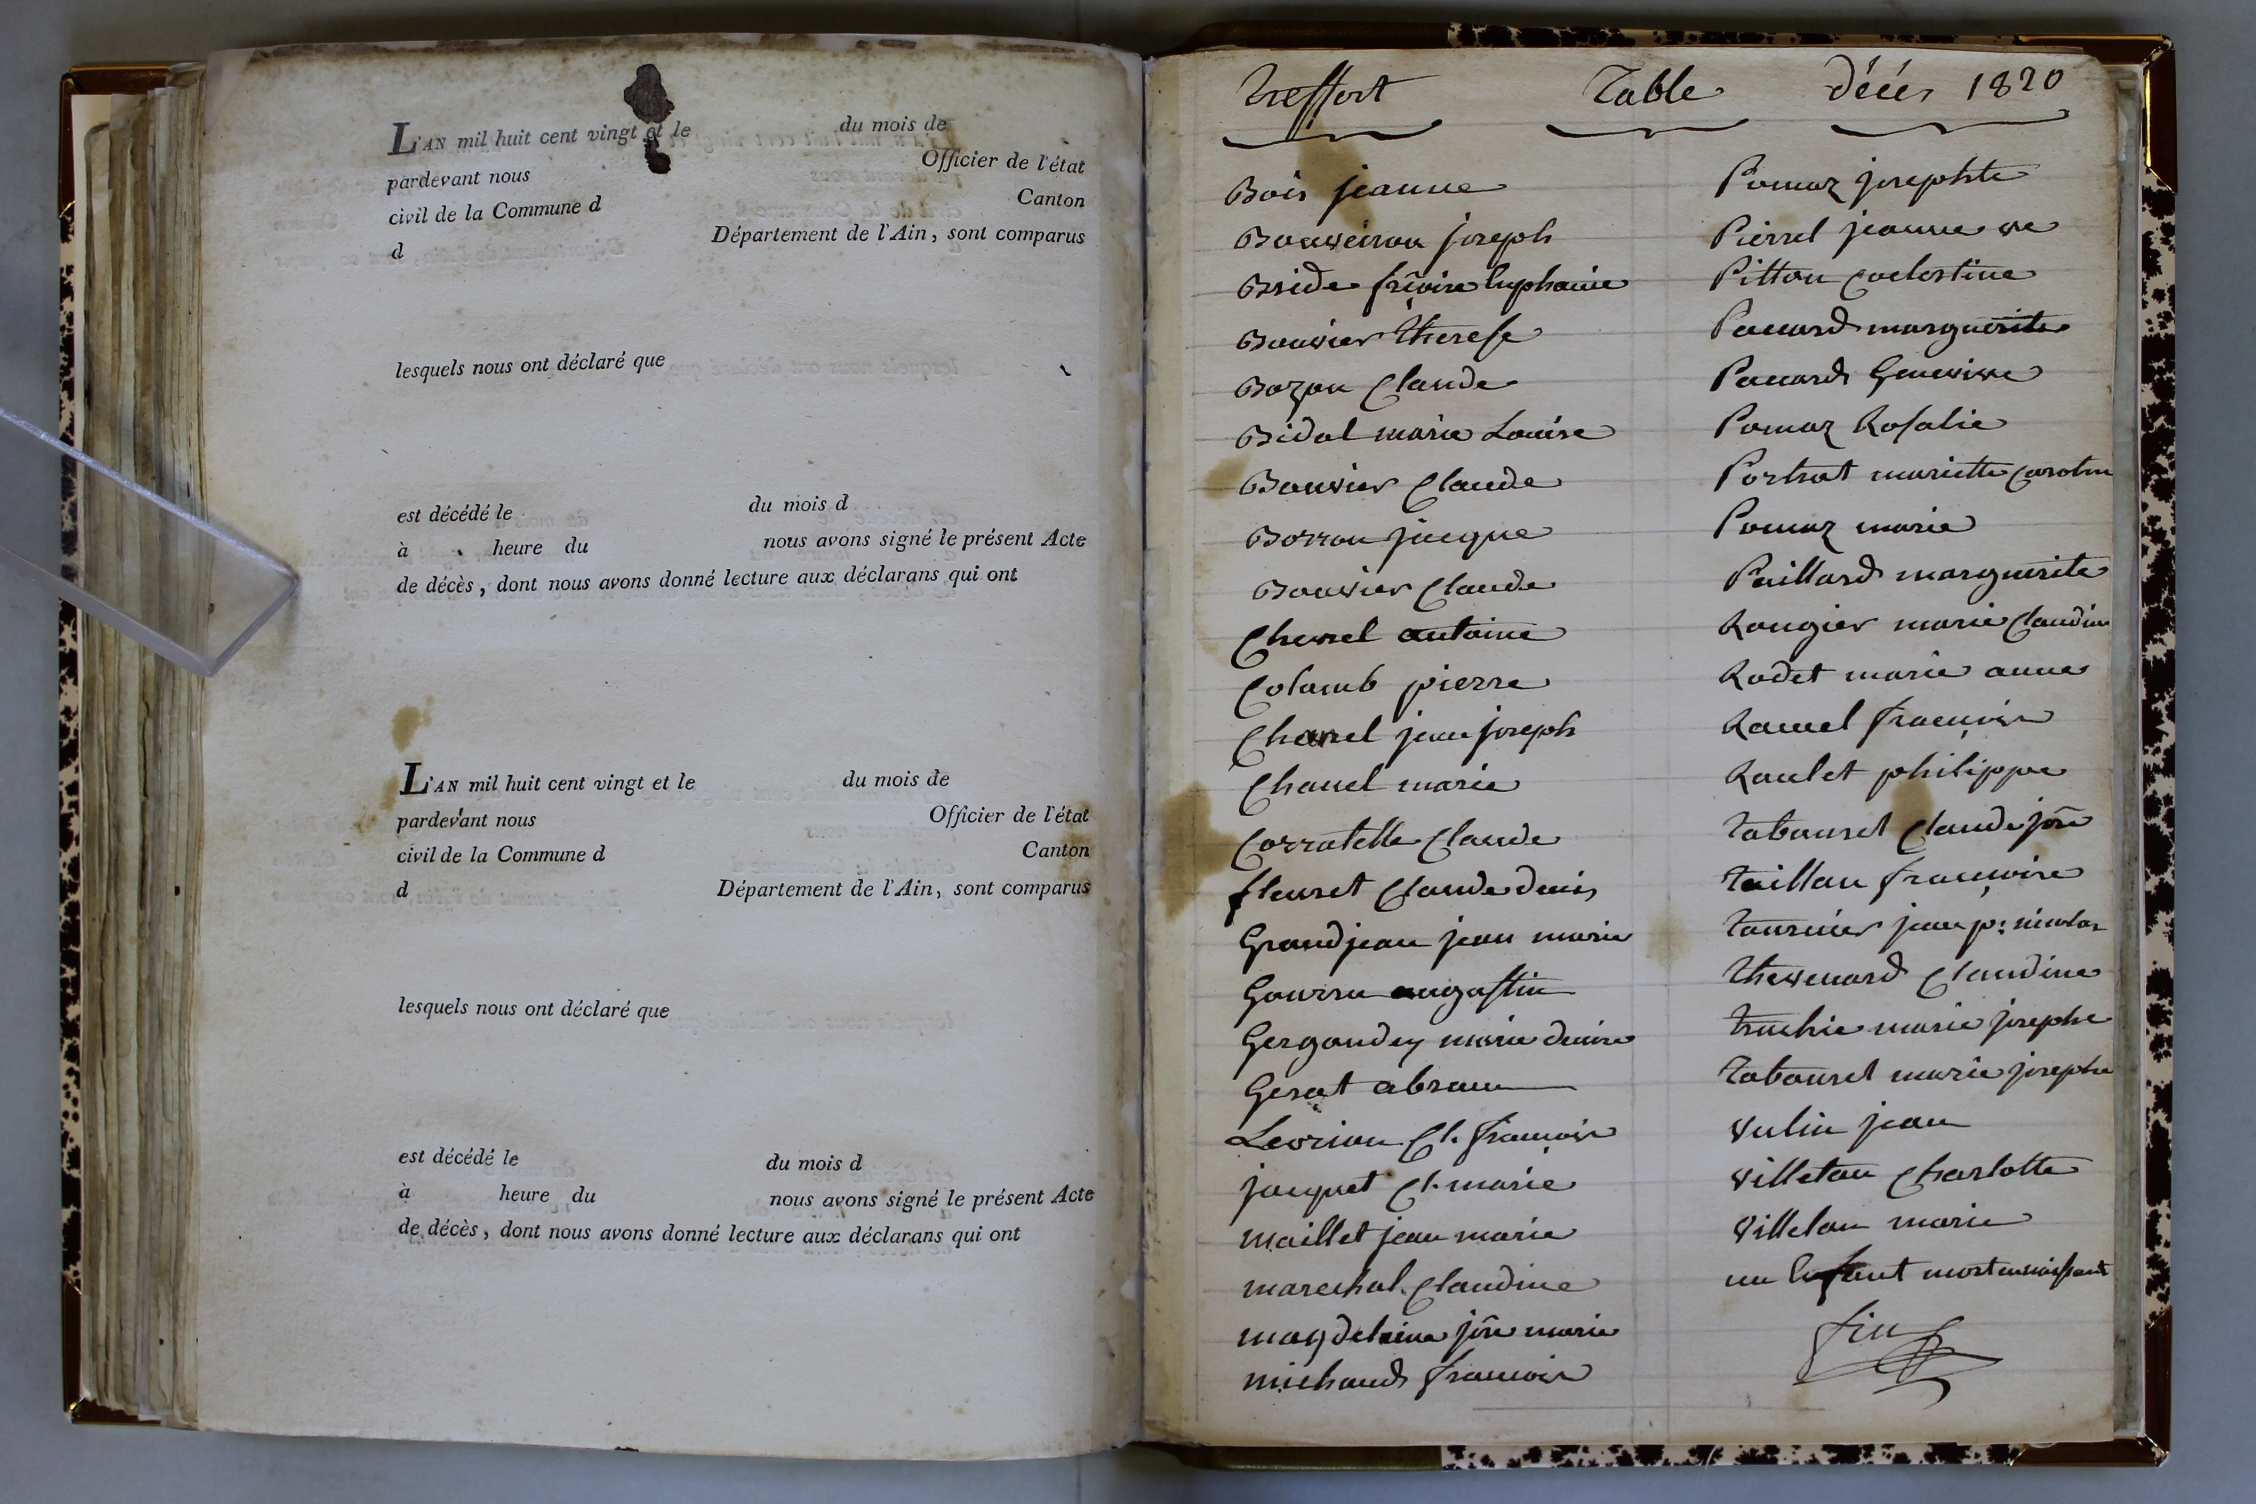 L'AN mil huit cent vingt et le du mois de
pardevant nous Officier de l'état
civil de la Commune d Canton
d Département de l'Ain, sont comparus
lesquels nous ont déclaré que
est décédé le du mois d
à heure du nous avons signé le présent Acte
de décès, dont nous avons donné lecture aux déclarans qui ont
L'AN mil huit cent vingt et le du mois de
pardevant nous Officier de l'état
civil de la Commune d Canton
d Département de l'Ain, sont comparus
lesquels nous ont déclaré que
est décédé le du mois d
à heure du nous avons signé le présent Acte
de décès, dont nous avons donné lecture aux déclarans qui ont
Treffort Table Décés 1820
Bois jeanne
joseph
Bride
Bouvier Therese
Bozon Claude
Bidal marie Louise
Bouvier Claude
Borron jacque
Bouvier Claude
Chevrel antoine
Colomb pierre
Chanel jean joseph
Chanel marie
Corratelle Claude
fleuret Claude denis
Grandjean jean marie
augustin
Gergondey marie denise
Gerat abram
Levrion Cl. francois
jacquet Cl. marie
maillet jean marie
marechal Claudine
magdeleine jñe marie
michaud francois
Pomaz josephte
Pierrel jeanne ve
Pitton Coelestine
Pauard marguerite
Pauard Genevieve
Pomaz Rosalie
Portrat mariette
Pomaz marie
Paillard marguerite
Rougier marie Claudine
Rodet marie anne
Ramel françois
Raulet philippe
Tabouret Claude jõe
Taillan françoise
Tournier jean p: nicolas
Thevenard Claudine
Truchie marie josephe
Tabouret marie josephe
Vulin jean
Villeton Charlotte
Villeton marie
un Enfant mort en naissant
fin